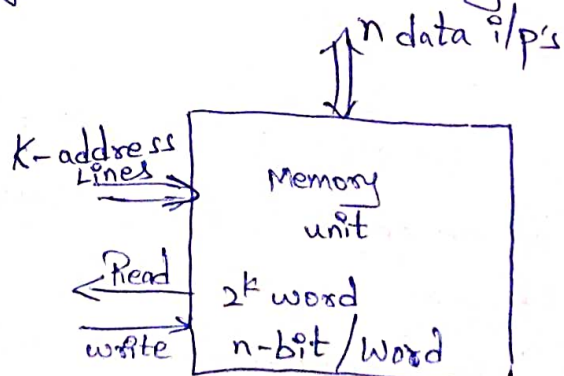 n data i/p's
K-address
Lines
Memory
unit
Read
2^k word
write
n-bit/Word